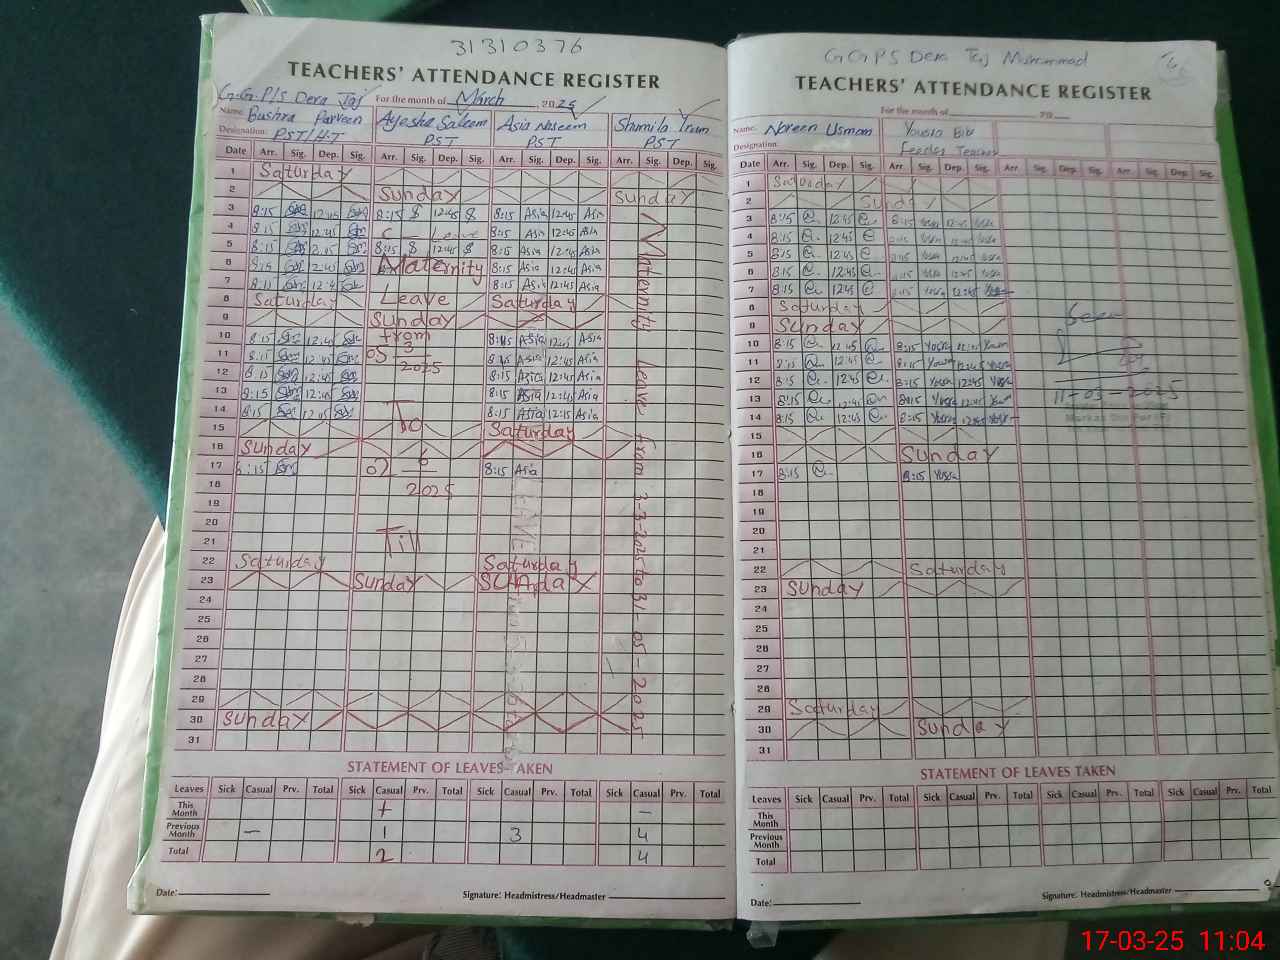 31310376
TEACHERS' ATTENDANCE REGISTER
G.G.P/S Dera Taj For the month of March, 2025
Name: Bushra Parveen Ayesha Saleem Asia Naseem Shumila Iram
Designation: PST/HT PST PST PST
Date Arr. Sig. Dep. Sig. Arr. Sig. Dep. Sig. Arr. Sig. Dep. Sig. Arr. Sig. Dep. Sig.
1 Saturday
2 Sunday Sunday
3 8:15 12:45 8:15 12:45 8:15 Asia 12:45 Asia
4 8:15 12:45 C Leave 8:15 Asia 12:45 Asia
5 8:15 12:45 8:15 12:45 8:15 Asia 12:45 Asia
6 8:15 12:45 Maternity 8:15 Asia 12:45 Asia
7 8:15 12:45 8:15 Asia 12:45 Asia
8 Saturday Leave Saturday
9 Sunday
10 8:15 12:45 from 8:15 Asia 12:45 Asia
11 8:15 12:45 05 3 2025 8:15 Asia 12:45 Asia
12 8:15 12:45 8:15 Asia 12:45 Asia
13 8:15 12:45 8:15 Asia 12:45 Asia
14 8:15 12:45 To 8:15 Asia 12:45 Asia
15 Saturday
16 Sunday
17 8:15 6 8:15 Asia
18 2025
19
20
21 Till
22 Saturday Saturday
23 Sunday Sunday
24
25
26
27
28
29
30 Sunday
31
Maternity Leave from 3-3-2025 to 31-05-2025
LEAVE
STATEMENT OF LEAVES TAKEN
Leaves Sick Casual Prv. Total Sick Casual Prv. Total Sick Casual Prv. Total Sick Casual Prv. Total
This Month + –
Previous Month – 1 3 4
Total 2 4
Date: Signature: Headmistress/Headmaster
GGPS Dera Taj Muhammad
TEACHERS' ATTENDANCE REGISTER
For the month of 20
Name: Noreen Usman Yousra Bibi
Designation: Feeder Teacher
Date Arr. Sig. Dep. Sig. Arr. Sig. Dep. Sig. Arr. Sig. Dep. Sig. Arr. Sig. Dep. Sig.
1 Saturday
2 Sunday
3 8:15 12:45 8:15 12:45
4 8:15 12:45 12:45
5 8:15 12:45 12:45
6 8:15 12:45 8:15 12:45
7 8:15 12:45 8:15 12:45
8 Saturday
9 Sunday
10 8:15 12:45 8:15 12:45
11 8:15 12:45 8:15 12:45
12 8:15 12:45 8:15 12:45
13 8:15 12:45 8:15 12:45
14 8:15 12:45 8:15 12:45
15
16 Sunday
17 8:15 8:15
18
19
20
21
22 Saturday
23 Sunday
24
25
26
27
28
29 Saturday
30 Sunday
31
Seen
11-03-2025
STATEMENT OF LEAVES TAKEN
Leaves Sick Casual Prv. Total Sick Casual Prv. Total Sick Casual Prv. Total Sick Casual Prv. Total
This Month
Previous Month
Total
Date: Signature: Headmistress/Headmaster
17-03-25 11:04